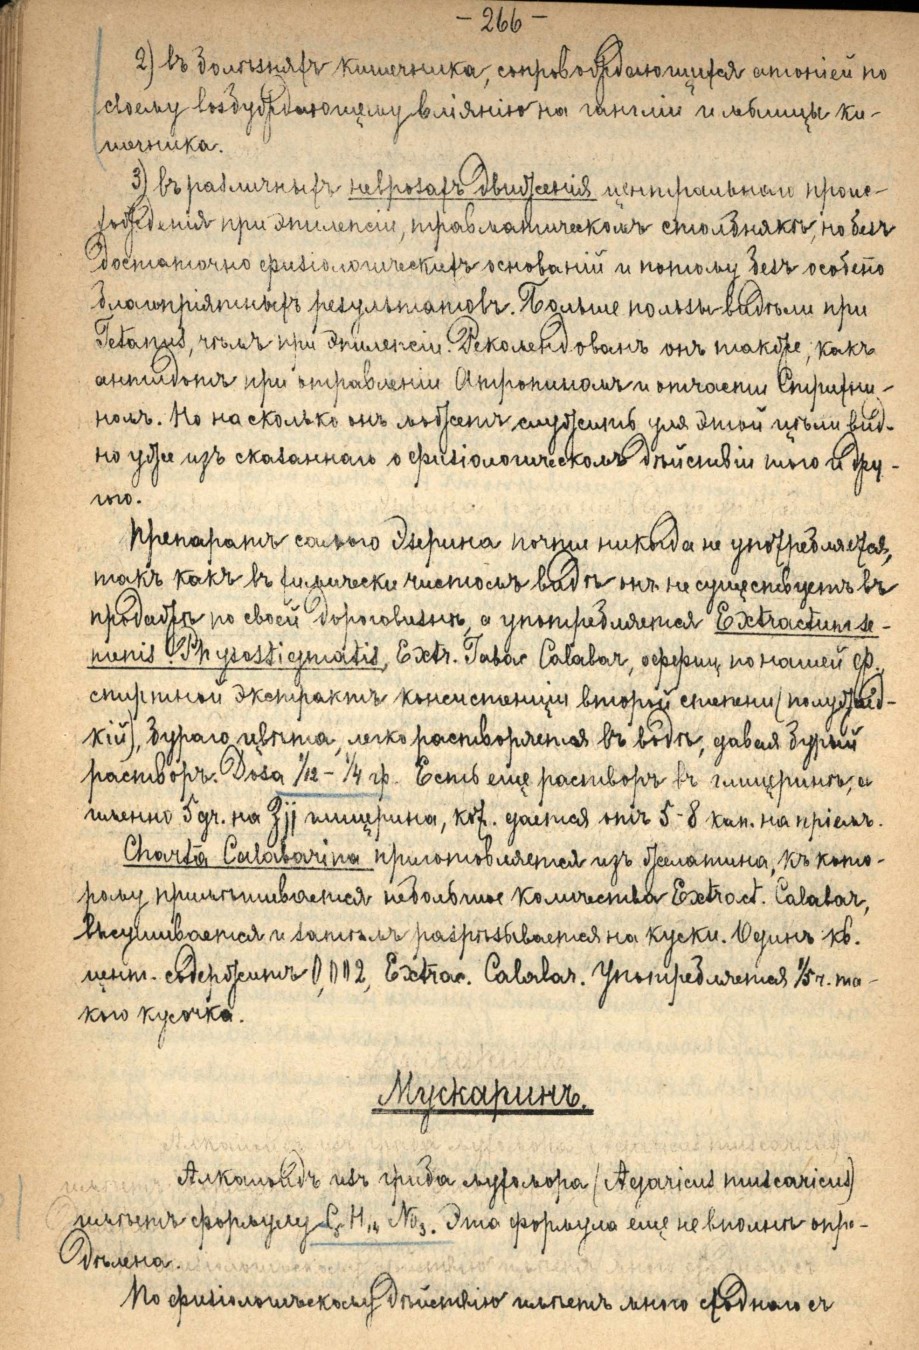 - 266 -
2) въ болѣзняхъ кишечника, сопровождающихся атоніей по
своему возбуждающему вліянію на гангліи и мышцы ки-
шечника.
3) въ различныхъ неврозахъ движенія центральнаго проис-
хожденія при эпилепсіи, травматическомъ столбнякѣ, но безъ
достаточно физіологическихъ основаній и потому безъ особено
благопріятныхъ результатовъ. Больше пользы видѣли при
Tetanus, чѣмъ при эпилепсіи. Рекомендованъ онъ также, какъ
антидотъ при отравленіи Атропиномъ и отчасти Стрихни-
номъ. Но на сколько онъ можетъ служить для этой цѣли вид-
но уже изъ сказаннаго о физіологическомъ дѣйствіи того и дру-
гого.
Препаратъ самого Эзерина почти никогда не употребляется,
такъ какъ въ химически чистомъ видѣ онъ не существуетъ въ
продажѣ по своей дороговизнѣ, а употребляется Extractum se-
menis Physostigmatis, Extr. Fabae Calabar, оффиц по нашей Ф.
спиртной экстрактъ консистенціи второй степени (полужид-
кій), бураго цвѣта, легко растворяется въ водѣ, давая бурый
растворъ. Dosa 1/12 - 1/4 гр. Есть еще растворъ въ глицеринѣ, а
именно 5 гр. на ʒjj глицерина, кот. дается отъ 5-8 кап. на пріемъ.
Charta Calabarina приготовляется изъ желатина, къ кото-
рому примѣшивается небольшое количества Extract. Calabar,
высушивается и затѣмъ разрѣзывается на куски. Одинъ кв.
цент. содержитъ 0,002, Extrac. Calabar. Употребляется 1/5 ч. та-
кого кусочка.
Мускаринъ.
Алкалоидъ изъ гриба мухомора (Agaricus muscaricus)
имѣетъ формулу C₅ H₁₄ No₃. Эта формула еще не вполнѣ опре-
дѣлена.
По физіологическому дѣйствію имѣетъ много сходнаго съ